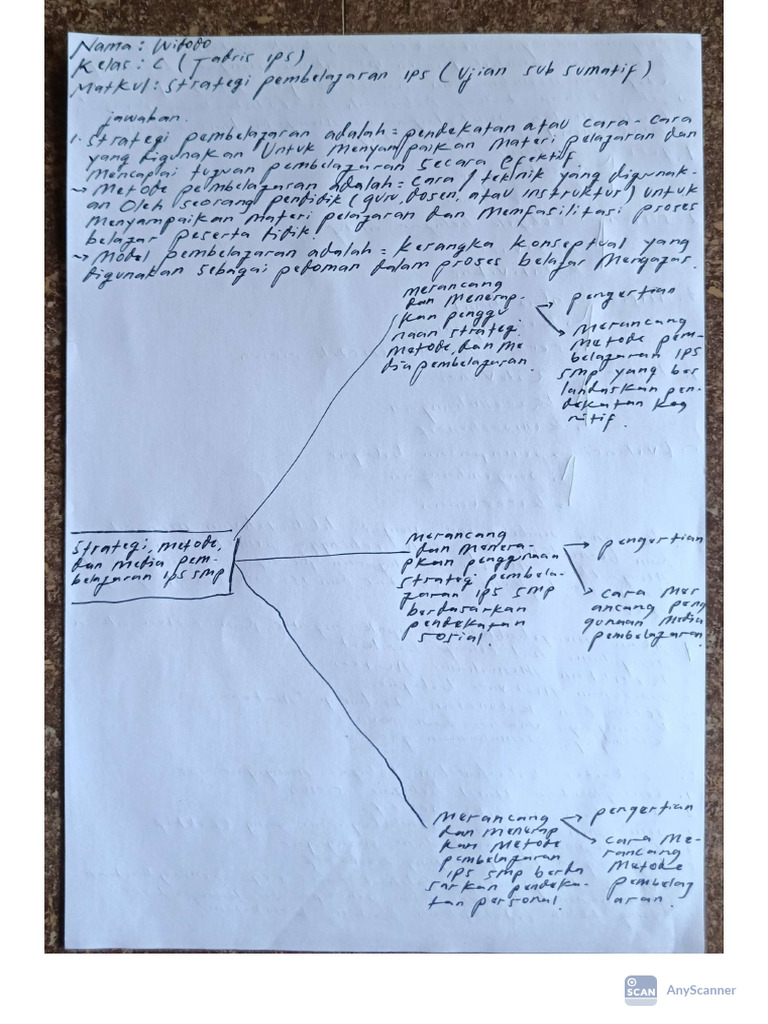 Nama : Widodo
Kelas : C ( Tadris IPS )
Matkul : Strategi pembelajaran IPS ( Ujian sub sumatif )
jawaban.
1. Strategi pembelajaran adalah = pendekatan atau cara-cara
yang digunakan untuk menyampaikan materi pelajaran dan
mencapai tujuan pembelajaran secara efektif
→ Metode pembelajaran adalah = cara / teknik yang digunak-
an oleh seorang pendidik ( guru, dosen, atau instruktur ) untuk
menyampaikan materi pelajaran dan memfasilitasi proses
belajar peserta tidik.
→ Model pembelajaran adalah = kerangka konseptual yang
digunakan sebagai pedoman dalam proses belajar mengajar.
merancang
dan menerap-
kan penggu
naan strategi
metode, dan me
dia pembelajaran.
→ pengertian
→ Merancang
metode pem-
belajaran IPS
SMP yang ber
landaskan pen-
dekatan kog
nitif.
Strategi, metode,
dan media pem-
belajaran IPS SMP
merancang
dan menera-
pkan penggunaan
strategi pembela-
jaran IPS SMP
berdasarkan
pendekatan
sosial.
→ pengertian
→ cara mer
ancang peng
gunaan media
pembelajaran.
Merancang
dan menerap
kan metode
pembelajaran
IPS SMP berda
sarkan pendeka-
tan personal.
→ pengertian
→ cara me-
rancang
metode
pembelaj
aran.
SCAN AnyScanner